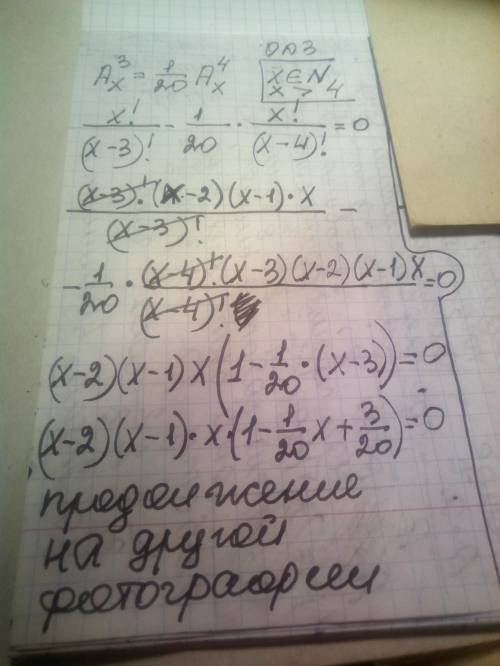 ОДЗ
A_x^3 = 1/20 A_x^4
x ∈ N
x > 4
x!/(x-3)! - 1/20 · x!/(x-4)! = 0
(x-3)!(x-2)(x-1)·x/(x-3)! -
- 1/20 · (x-4)!(x-3)(x-2)(x-1)x/(x-4)! = 0
(x-2)(x-1)x(1 - 1/20 · (x-3)) = 0
(x-2)(x-1)·x·(1 - 1/20 x + 3/20) = 0
продолжение
на другой
фотографии